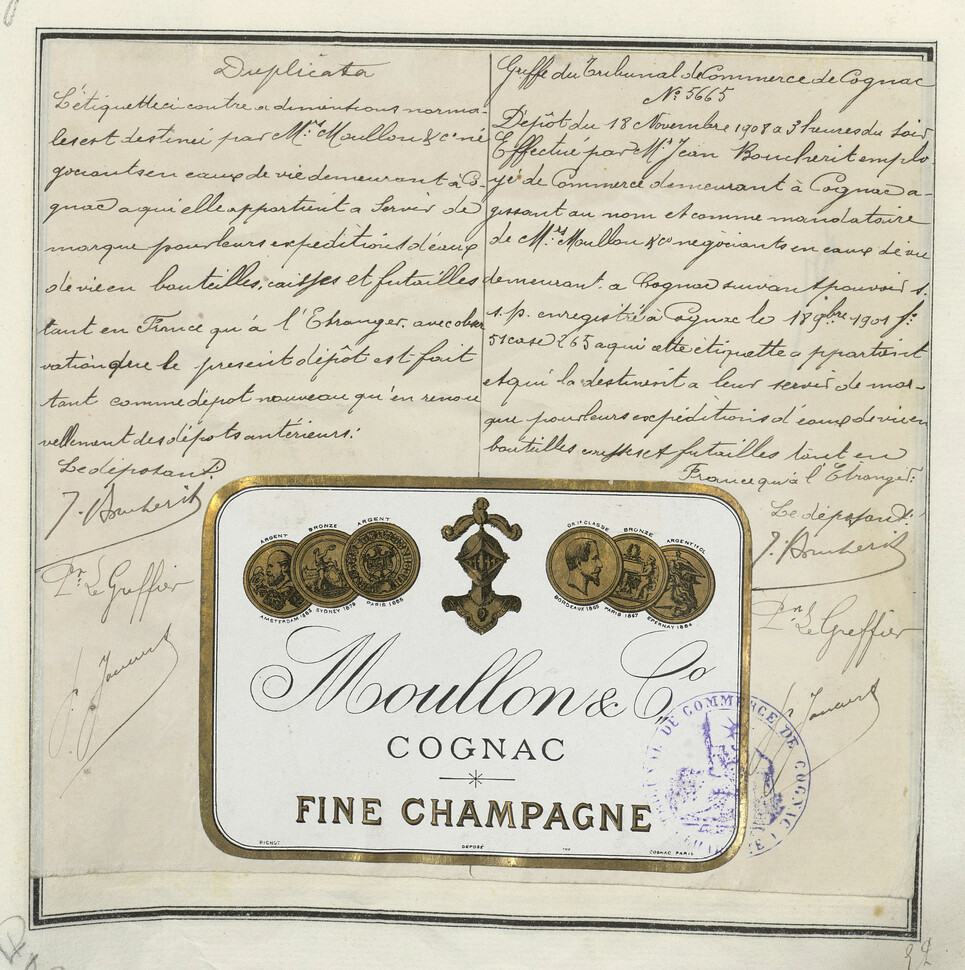 Duplicata
L'étiquette ci contre a dimensions norma-
les est destinée par Mrs Moullon & Cie né
gociants en eaux de vie demeurant à Co-
gnac a qui elle appartient a servir de
marque pour leurs expéditions d'eaux
de vie en bouteilles, caisses et futailles
tant en France qu'à l'Etranger. avec obser
vation que le présent dépôt est fait
tant comme dépot nouveau qu'en renou
vellement des dépots antérieurs:
Le déposant.
J. Boucherit
Pr. Le Greffier
Greffe du Tribunal de Commerce de Cognac
No 5665
Dépôt du 18 Novembre 1908 a 3 heures du soir
Effectué par Mr Jean Boucherit emplo
yé de Commerce demeurant à Cognac a-
gissant au nom et comme mandataire
de Mrs Moullon & Co négociants en eaux de vie
demeurant a Cognac suivant pouvoir s.
s.p. enregistré à Cognac le 18 9bre 1901 fo
51 case 265 a qui cette étiquette appartient
et qui la destinent a leur servir de mar-
que pour leurs expéditions d'eaux de vie en
bouteilles caisses et futailles tant en
France qu'à l'Etranger:
Le déposant.
J. Boucherit
Pr. Le Greffier
ARGENT BRONZE ARGENT
AMSTERDAM 1883 SYDNEY 1879 PARIS 1886
OR 1e CLASSE BRONZE ARGENT 1e CL
BORDEAUX 1865 PARIS 1867 EPERNAY 1884
Moullon & Co
COGNAC
FINE CHAMPAGNE
DÉPOSÉ COGNAC PARIS
TRIBUNAL DE COMMERCE DE COGNAC